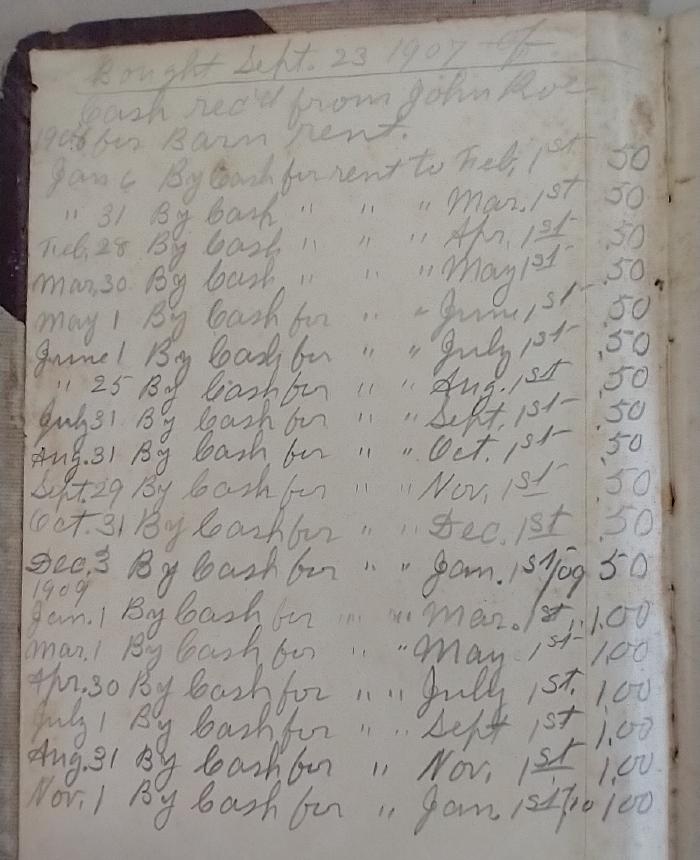 Bought Sept. 23 1907
Cash rec'd from John Roe
for Barn rent.
Jan 6 By Cash for rent to Feb, 1st .50
" 31 By Cash " " " Mar. 1st .50
Feb. 28 By Cash " " " Apr. 1st .50
Mar. 30 By Cash " " " May 1st .50
May 1 By Cash for " " June 1st .50
June 1 By Cash for " " July 1st .50
" 25 By Cash for " " Aug. 1st .50
July 31 By Cash for " " Sept. 1st .50
Aug. 31 By Cash for " " Oct. 1st .50
Sept. 29 By Cash for " " Nov. 1st .50
Oct. 31 By Cash for " " Dec. 1st .50
Dec. 3 By Cash for " " Jan. 1st/09 50
1909
Jan. 1 By Cash for " " Mar. 1st, 1.00
Mar. 1 By Cash for " " May 1st 1.00
Apr. 30 By Cash for " " July 1st. 1.00
July 1 By Cash for " " Sept 1st 1.00
Aug. 31 By Cash for " Nov. 1st 1.00
Nov. 1 By Cash for " Jan. 1st/10 1.00